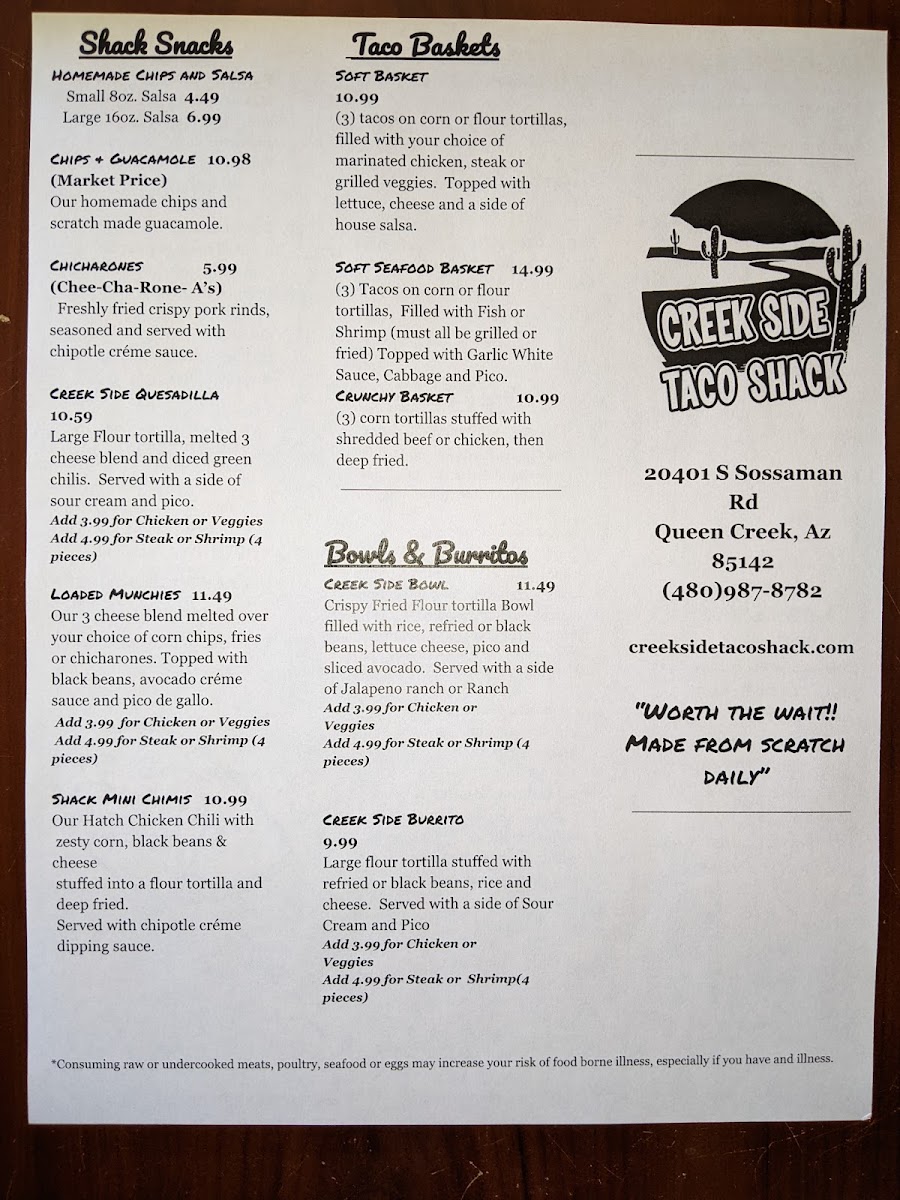 Shack Snacks
Homemade Chips and Salsa
Small 8oz. Salsa 4.49
Large 16oz. Salsa 6.99
Chips + Guacamole 10.98
(Market Price)
Our homemade chips and
scratch made guacamole.
Chicharones 5.99
(Chee-Cha-Rone- A's)
Freshly fried crispy pork rinds,
seasoned and served with
chipotle créme sauce.
Creek Side Quesadilla
10.59
Large Flour tortilla, melted 3
cheese blend and diced green
chilis. Served with a side of
sour cream and pico.
Add 3.99 for Chicken or Veggies
Add 4.99 for Steak or Shrimp (4
pieces)
Loaded Munchies 11.49
Our 3 cheese blend melted over
your choice of corn chips, fries
or chicharones. Topped with
black beans, avocado créme
sauce and pico de gallo.
Add 3.99 for Chicken or Veggies
Add 4.99 for Steak or Shrimp (4
pieces)
Shack Mini Chimis 10.99
Our Hatch Chicken Chili with
zesty corn, black beans &
cheese
stuffed into a flour tortilla and
deep fried.
Served with chipotle créme
dipping sauce.
Taco Baskets
Soft Basket
10.99
(3) tacos on corn or flour tortillas,
filled with your choice of
marinated chicken, steak or
grilled veggies. Topped with
lettuce, cheese and a side of
house salsa.
Soft Seafood Basket 14.99
(3) Tacos on corn or flour
tortillas, Filled with Fish or
Shrimp (must all be grilled or
fried) Topped with Garlic White
Sauce, Cabbage and Pico.
Crunchy Basket 10.99
(3) corn tortillas stuffed with
shredded beef or chicken, then
deep fried.
Bowls & Burritos
Creek Side Bowl 11.49
Crispy Fried Flour tortilla Bowl
filled with rice, refried or black
beans, lettuce cheese, pico and
sliced avocado. Served with a side
of Jalapeno ranch or Ranch
Add 3.99 for Chicken or
Veggies
Add 4.99 for Steak or Shrimp (4
pieces)
Creek Side Burrito
9.99
Large flour tortilla stuffed with
refried or black beans, rice and
cheese. Served with a side of Sour
Cream and Pico
Add 3.99 for Chicken or
Veggies
Add 4.99 for Steak or Shrimp(4
pieces)
CREEK SIDE
TACO SHACK
20401 S Sossaman
Rd
Queen Creek, Az
85142
(480)987-8782
creeksidetacoshack.com
"Worth the wait!!
Made from scratch
daily"
*Consuming raw or undercooked meats, poultry, seafood or eggs may increase your risk of food borne illness, especially if you have and illness.